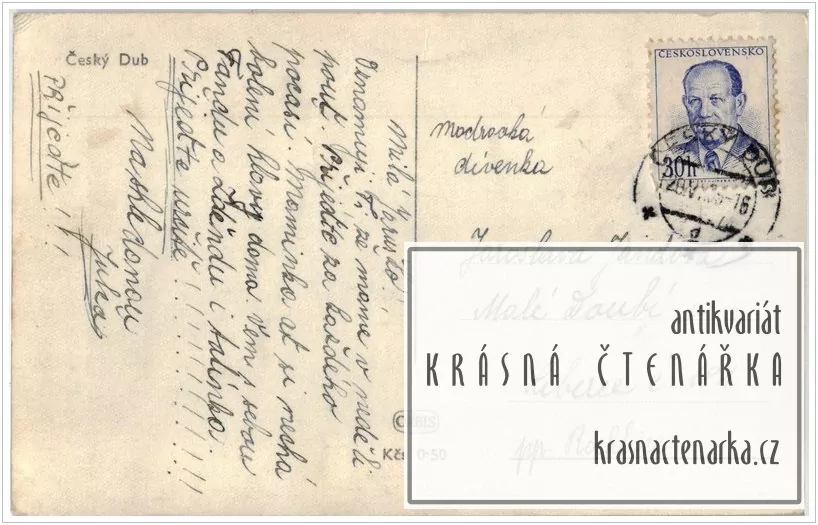 Český Dub
Milá Jaruško!
Oznamuji Ti, že máme v neděli
pouť. Přijeďte za každého
počasí. Maminka ať si nechá
bolení hlavy doma. Vem s sebou
Fandu a Zdendu i tatínka.
Přijeďte
Přijeďte!!!
Nashledanou
Modrooká
dívenka
ČESKOSLOVENSKO
30h
ČESKÝ DUB
Jaroslava
Malé Doubí
ORBIS
Kčs 0·50
antikvariát
KRÁSNÁ ČTENÁŘKA
krasnactenarka.cz